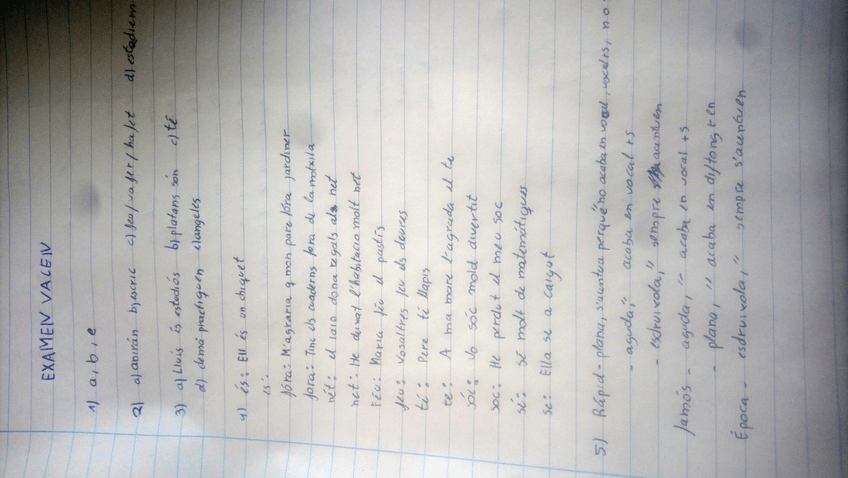 EXAMEN VALEN
1) a, b, e
2) a) anirán b) escric c) feu/va fer/ha fet d) estadiem
3) a) Lluis és estudiós b) platans són c) té
d) demá practiquen
4) és: Ell és un chiquet
es:
fóra: M'agraria q mon pare fóra jardiner
fora: Tinc els cuaderns fora de la motxila
nét: el iaio dona regals als net
net: He deixat l'habitacio molt net
féu: Maria féu el pastís
feu: Vosaltres feu els deures
té: Pere té llapis
te: A ma mare l'agrada el te
sóc: Yo soc mold divertit
soc: He perdut el meu soc
sé: sé molt de matemátiques
se: Ella se a caigut
5) Rápid - plana, s'acentua perqué no acaba en vocal, vocal+s, no
- aguda, " acaba en vocal +s
- esdruixola, " sempre acentuen
Jamós - aguda, " acaba en vocal +s
- plana, " acaba en diftong+en
Época - esdruixola, " sempre s'acentuen